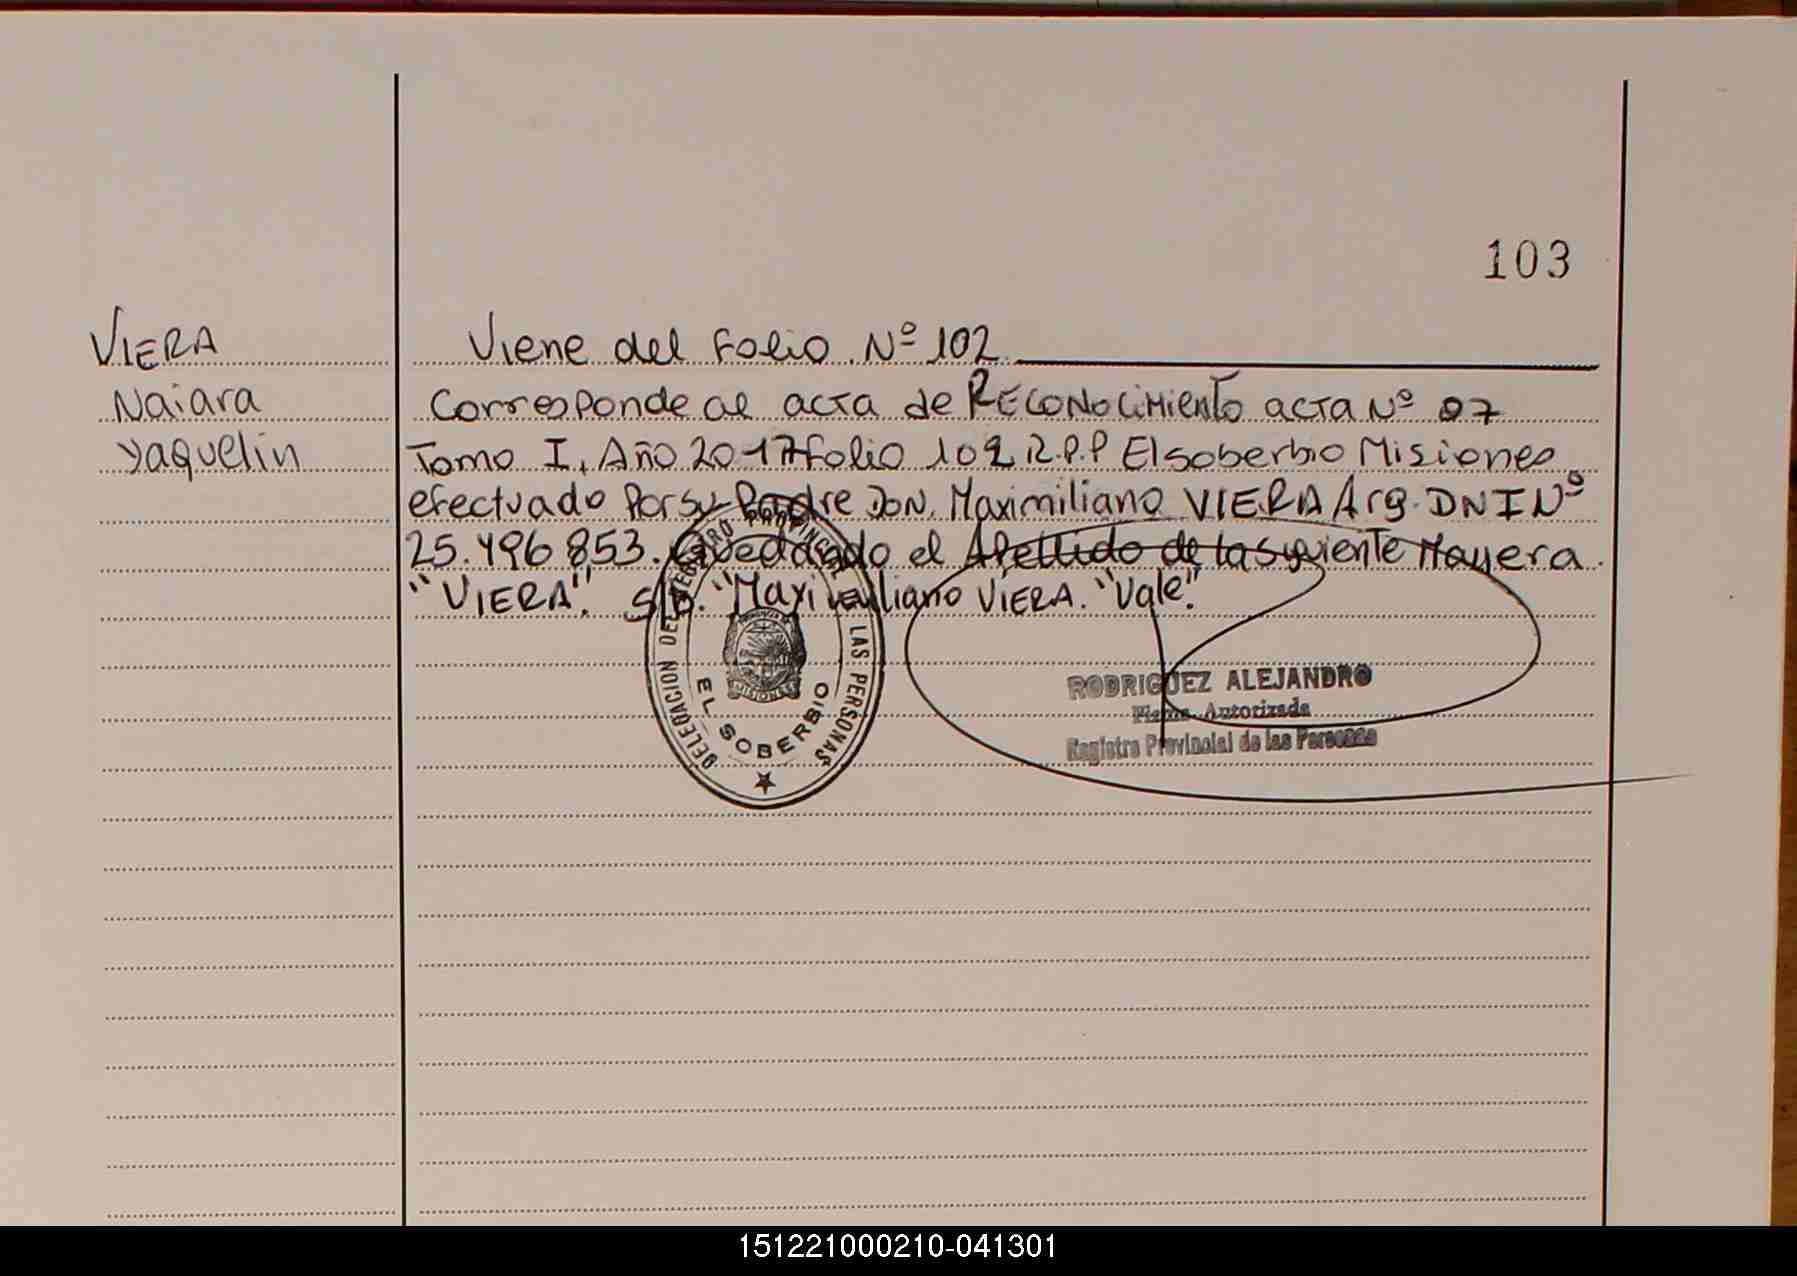 103
VIERA
Naiara
Yaquelin
Viene del Folio Nº 102
Corresponde al acta de RECONOCIMIENTO acta Nº 07
Tomo I, Año 2017 folio 102 R.P.P El soberbio Misiones
efectuado Por su Padre Don. Maximiliano VIERA Arg. DNI Nº
25.496 853. Quedando el Apellido de la siguiente Mayera
"VIERA". S/B. "Maximiliano VIERA. "Vale".
DELEGACION DEL REGISTRO PROVINCIAL LAS PERSONAS
MISIONES
EL SOBERBIO
RODRIGUEZ ALEJANDRO
Firma Autorizada
Registro Provincial de las Personas
151221000210-041301